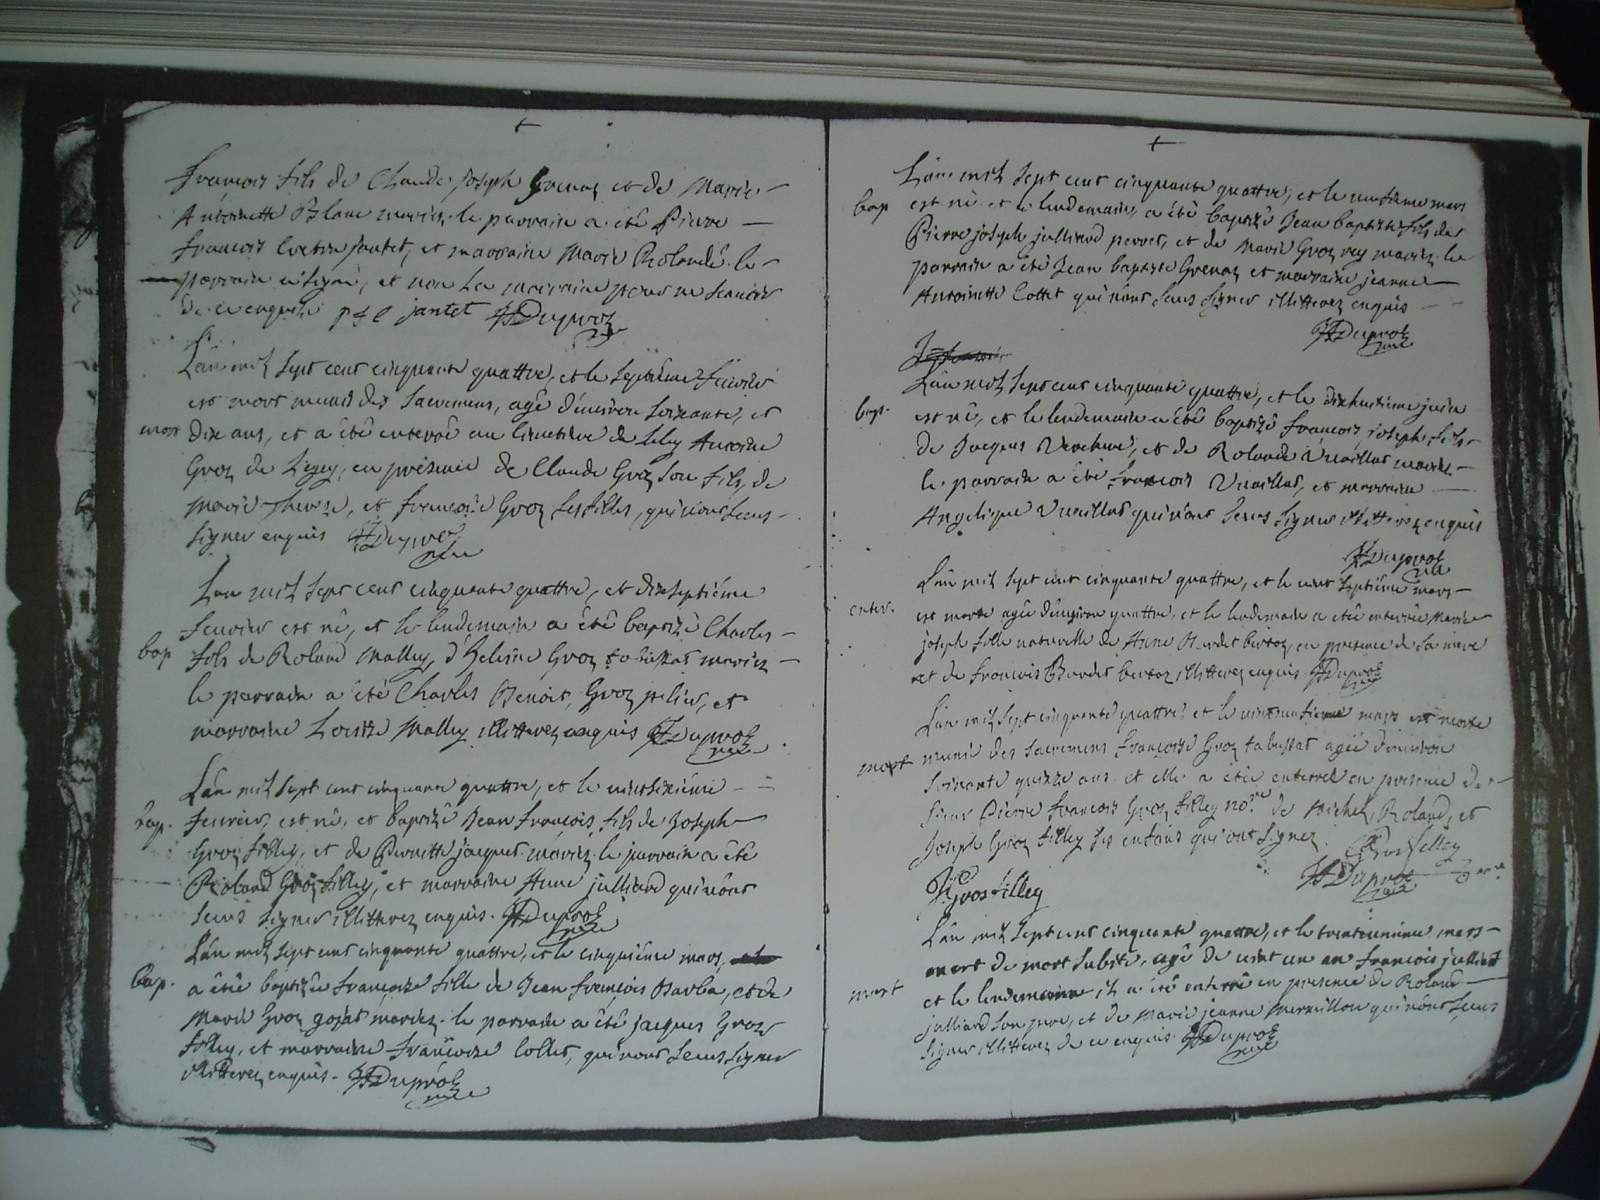 françois fils de Claude joseph Grenaz et de Marie
Antoinette Blanc mariez. le parrain a été Pierre
françois jantet, et marraine Marie Rolande le
parrain a signé, et non la marraine pour ne scavoir
de ce enquise p f c jantet Duproz
L'an mil sept cent cinquante quattre, et le septiéme fevrier
est mort muni des sacremens, agé d'environ soixante, et
mort dix ans, et a été enterré au cimetiere de Antoine
Groz de en présence de Claude Groz son fils, de
Marie Therese, et françoise Groz ses filles, qui n'ont sceus
signer enquis Duproz
L'an mil sept cent cinquante quattre, et dixseptiéme
fevrier est né, et le lendemain a été baptizé Charles
bap fils de Roland Malley, d'Heleine Groz tabussat mariez
le parrain a été Charles Benoit Groz pelier, et
marraine Malley illitterez enquis Duproz
L'an mil sept cent cinquante quattre, et le vintsixiéme
bap. fevrier, est né, et baptizé Jean François fils de Joseph
Groz filley, et de Pernette jacques mariez. le parrain a été
Roland Groz filley, et marraine Anne julliard qui n'ont
sceus signer illitterez enquis. Duproz
L'an mil sept cent cinquante quattre, et le cinquiéme mars,
bap. a été baptizée françoise fille de Jean françois Barba, et de
Marie Groz gojat mariez. le parrain a été jacques Groz
filley, et marraine françoise Collet, qui n'ont sceus signer
illitterez enquis. Duproz
L'an mil sept cent cinquante quattre, et le mars
bap est né et le lendemain, a été baptizé Jean baptiste fils de
Pierre joseph julliard perret, et de Marie Groz rey mariez. le
parrain a été Jean baptiste Grenaz et marraine jeanne
Antoinette Cottet qui n'ont sceus signer illitterez enquis
Duproz
L'an mil sept cent cinquante quattre, et le dixhuitiéme juin
bap. est né, et le lendemain a été baptizé françois joseph fils
de Jacques et de Rolande Vuaillat mariez
le parrain a été françois Vuaillat, et marraine
Angelique Vuaillat qui n'ont sceus signer illitterez enquis
Duproz
L'an mil sept cent cinquante quattre, et le vint septiéme mars
enter. est morte agée d'environ quattre, et le lendemain a été enterrée Marie
joseph fille naturelle de Anne Burdet en presence de sa mere
et de françois Burdet illitterez enquis. Duproz
L'an mil sept cinquante quattre, et le vintneufiéme mars est morte
mort munie des sacremens françoise Groz tabussat agée d'environ
soixante quinze ans et elle a étée enterrée en presence de
sieur Pierre François Groz filley no.re de Michel, Roland, et
Joseph Groz filley ses enfans qui ont signez. Gros filley
Gros filley Duproz
L'an mil sept cent cinquante quattre, et le trenteuniéme mars
mort de mort subite, agé de vint un an françois julliard
mort et le lendemain il a été enterré en presence de Roland
julliard son pere, et de Marie jeanne qui n'ont sceus
signer illitterez de ce enquis. Duproz